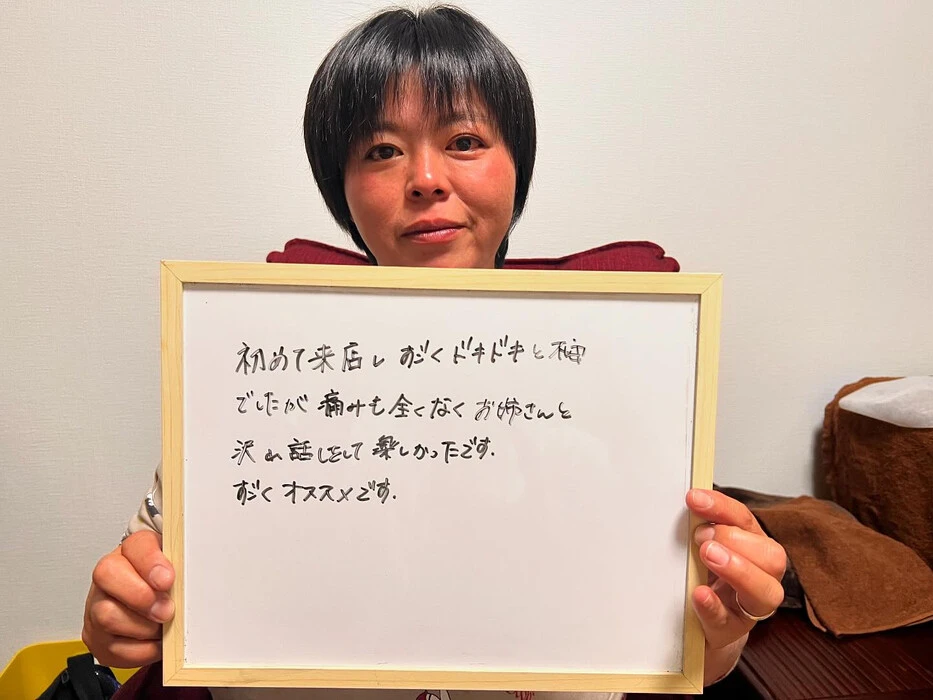 初めて来店し すごくドキドキと不安
でしたが 痛みも全くなく お姉さんと
沢山話しをして楽しかったです.
すごくオススメです.